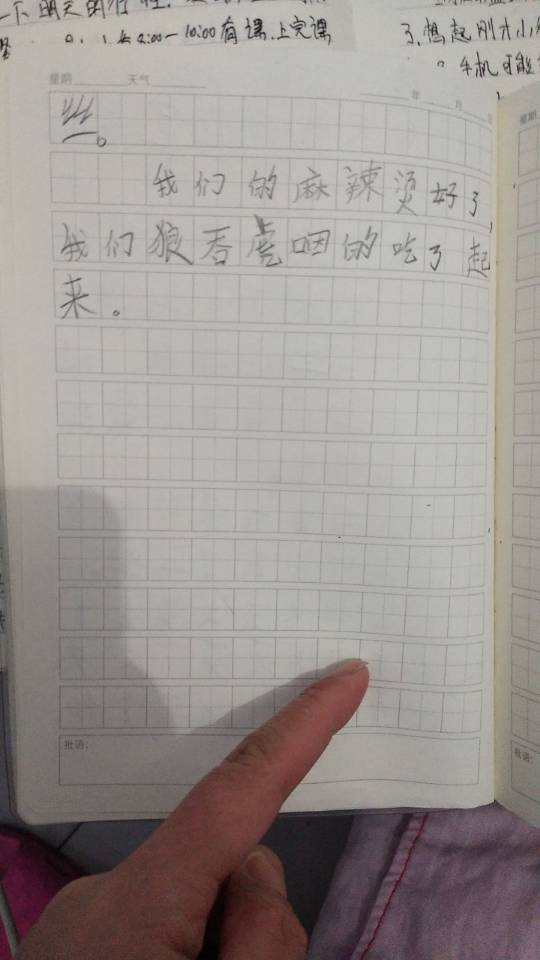 下明天的行程
8:00—10:00有课.上完课
3.想起刚才小
手机可能
星期 天气 年 月
星期
丝。
我们的麻辣烫好了,
我们狼吞虎咽的吃了起
来。
批语:
批语: